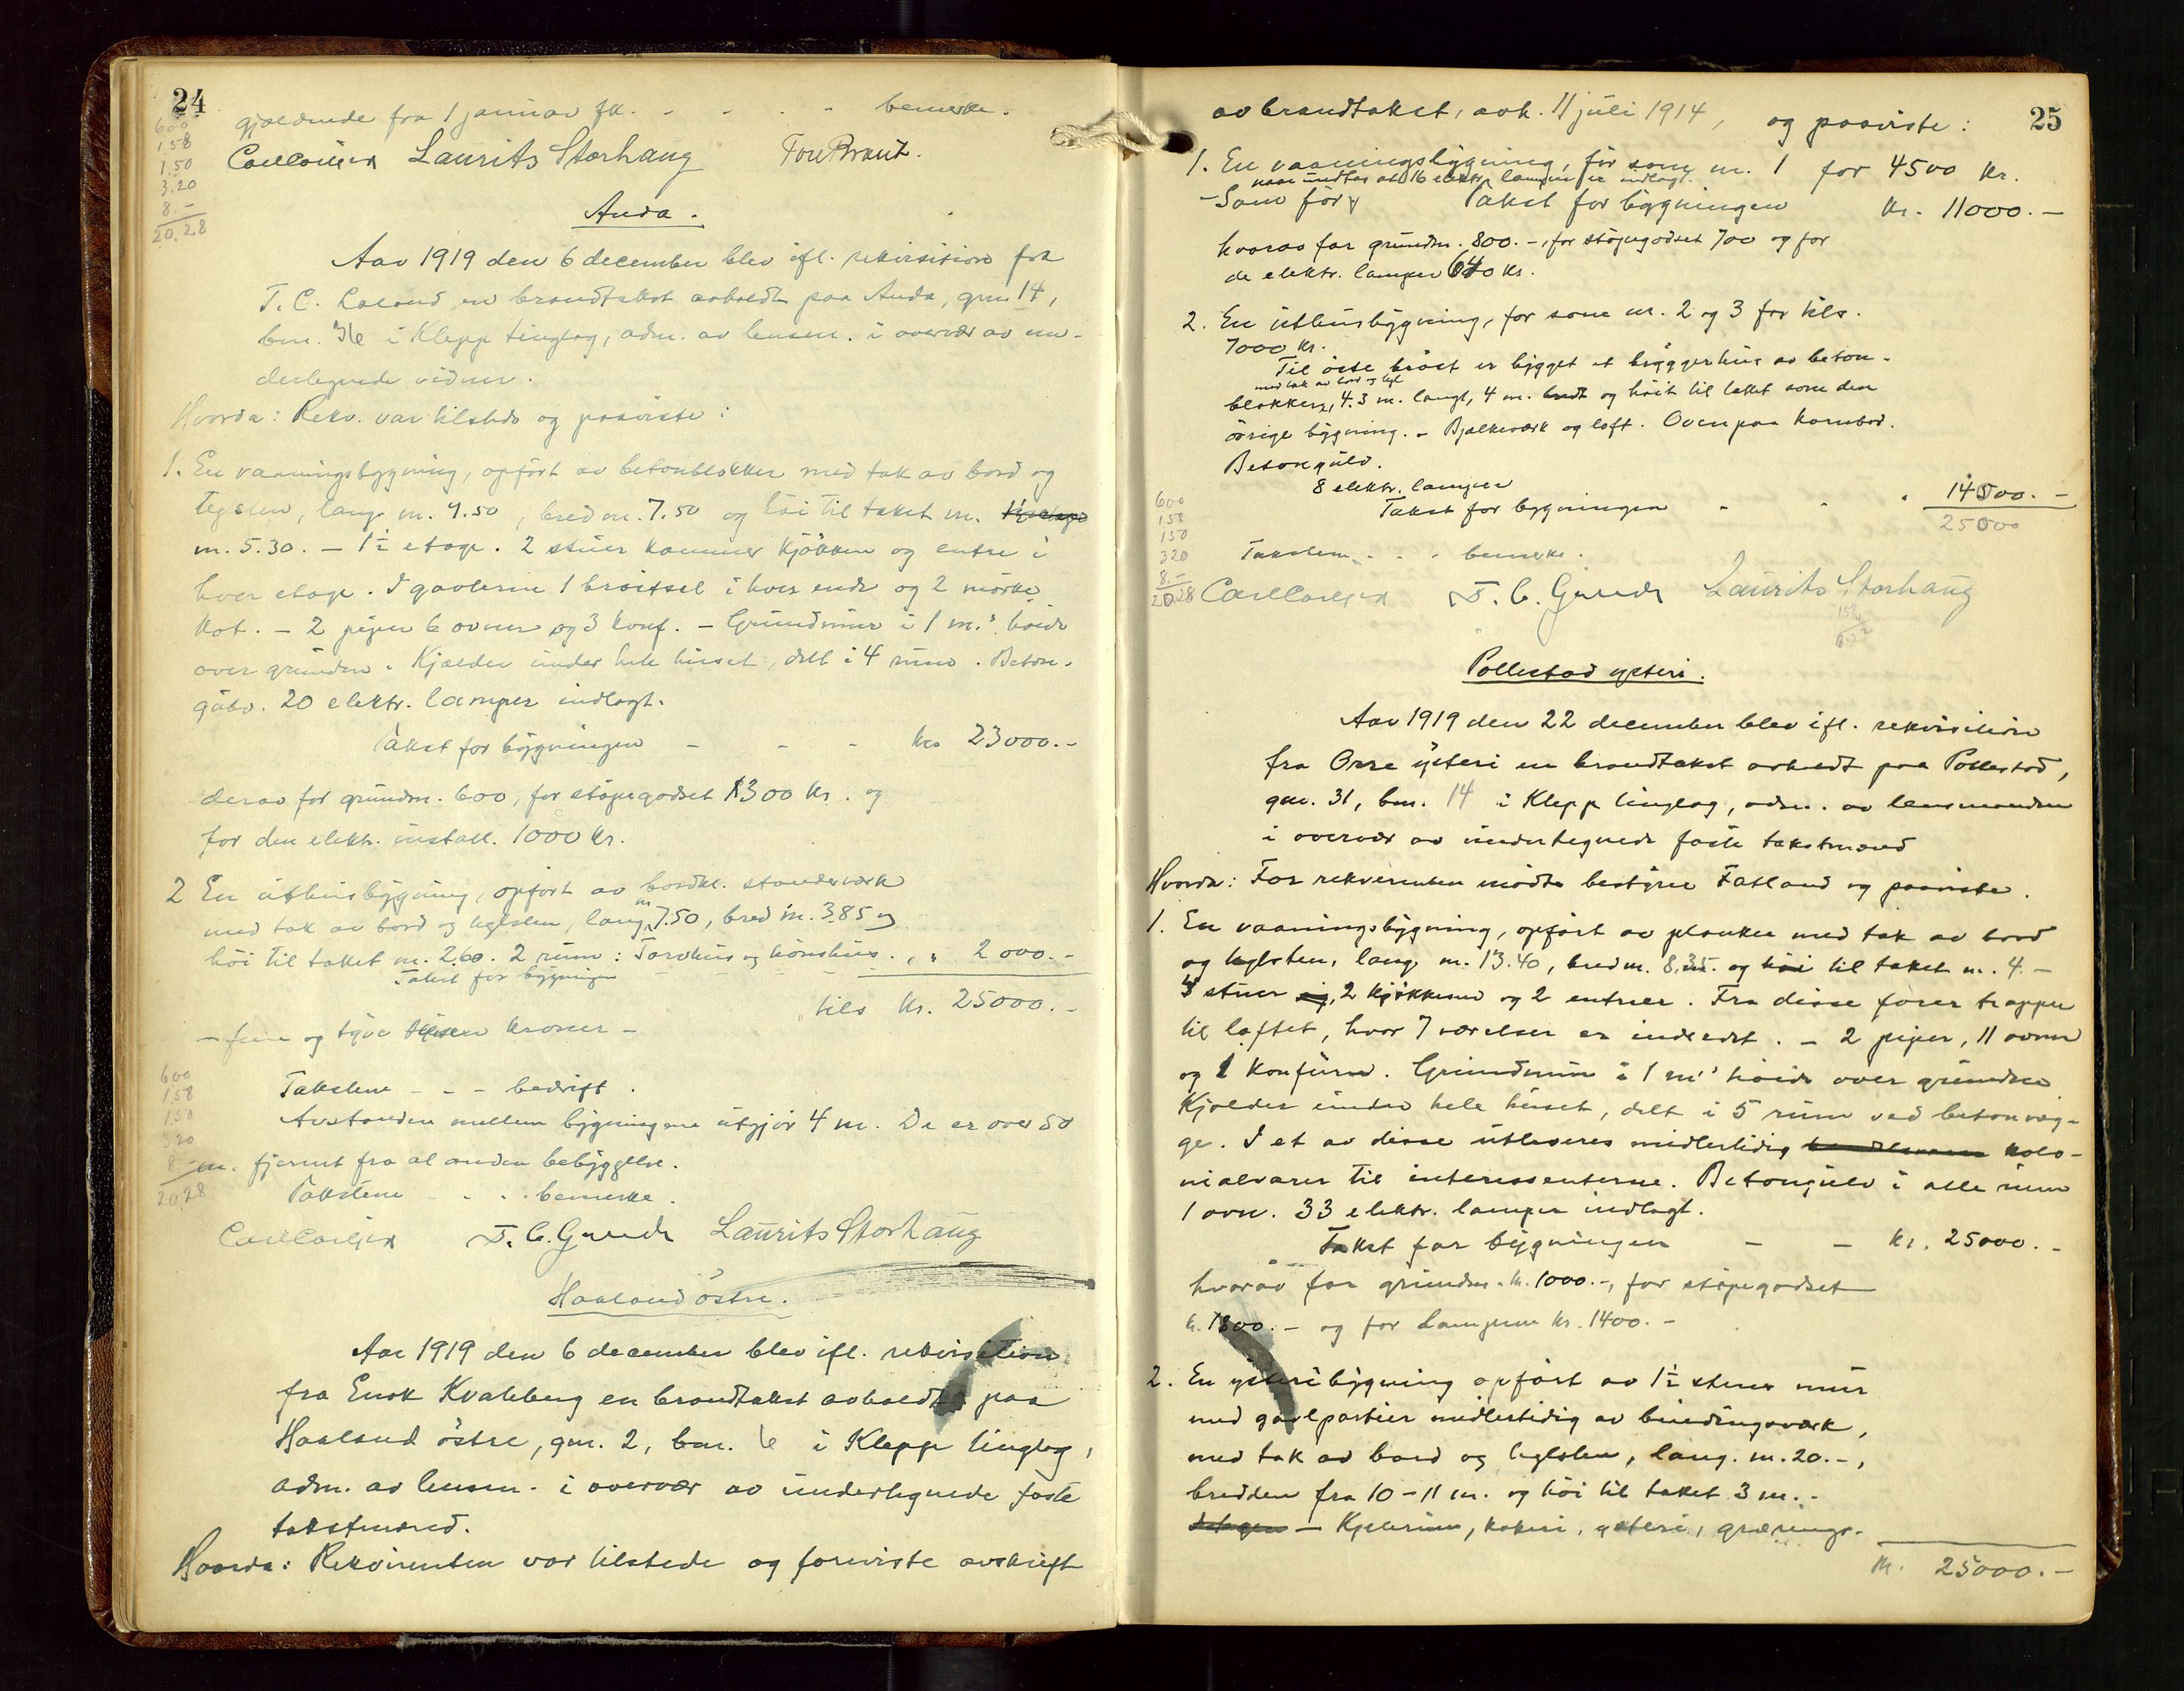 24
gjældende fra 1 januar fk. - - - - bemerke.
Carl Carlsen Laurits Storhaug Ton Braut.
600
1.58
1.50
3.20
8.-
20.28
Anda.
Aar 1919 den 6 december blev ifl. rekvisition fra
T. C. en brandtakst avholdt paa Anda, gnr. 14,
bnr. 36 i Klepp tinglag, adm. av lensm. i overvær av un-
dertegnede vidner.
Hvorda: Rekv. var tilstede og paaviste:
1. En vaaningsbygning, opført av betonblokker med tak av bord og
teglsten, lang m. 9.50, bred m. 7.50 og høi til taket m.
m. 5.30. - 1½ etage. 2 stuer kammer kjøkken og entre i
hver etage. I gavlerne 1 i hver ende og 2 mørke
kot. - 2 piper 6 ovner og 3 konf. - Grundmur i 1 m.s høide
over grunden. Kjælder under hele huset, delt i 4 rum. Beton-
gulv. 20 elektr. lamper indlagt.
Takst for bygningen - - - kr. 23000.-
derav for grundm. 600, for støpegodset 1300 kr. og
for den elektr. install. 1000 kr.
2 En uthusbygning, opført av bordkl. stenderverk
med tak av bord og teglsten, lang m. 7.50, bred m. 3.85 og
høi til taket m. 2.60. 2 rum: Torvhus og hønshus. " " 2000.-
Takst for bygningen
tils kr. 25000.-
- fem og tyve tusen kroner -
Takstene - - - bedrift.
600
158
150
320
8.-
20.28
Avstanden mellem bygningene utgjør 4 m. De er over 50
m. fjernet fra al anden bebyggelse.
Takstene - - - bemerke.
Carl Carlsen T. C. Grude Laurits Storhaug
Haaland østre.
Aar 1919 den 6 december blev ifl. rekvisition
fra Enok Kvaleberg en brandtakst avholdt paa
Haaland østre, gnr. 2, bnr. 6 i Klepp tinglag,
adm. av lensm. i overvær av undertegnede faste
takstmænd.
Hvorda: Rekvirenten var tilstede og foreviste avskrift
25
av brandtakst, avh. 11 juli 1914, og paaviste:
1. En vaaningsbygning, før som nr. 1 for 4500 kr.
naar undtas at 16 elektr. lamper er indlagt.
- Som før Takst for bygningen kr. 11000.-
hvorav for grundm. 800.-, for støpegodset 700 og for
de elektr. lamper 640 kr.
2. En uthusbygning, før som nr. 2 og 3 for tils.
7000 kr.
Til øste brøst er bygget et bryggerhus av beton-
med tak av bord og tegl
blokker, 4.3 m. langt, 4 m. bredt og høit til taket som den
øvrige bygning. - Bjelkeverk og loft. Ovenpaa kornbod.
Betongulv.
8 elektr. lamper
Takst for bygningen - - . 14000.-
25000
600
158
150
320
8.-
20.28
Takstene - - - bemerke.
Carl Carlsen T. C. Grude Laurits Storhaug
Pollestad ysteri.
Aar 1919 den 22 december blev ifl. rekvisition
fra Orre ysteri en brandtakst avholdt paa Pollestad,
gnr. 31, bnr. 14 i Klepp tinglag, adm. av lensmanden
i overvær av undertegnede faste takstmænd
Hvorda: For rekvirenten mødte bestyrer Fatland og paaviste.
1. En vaaningsbygning, opført av planker med tak av bord
og teglsten, lang m. 13.40, bred m. 8.35. og høi til taket m. 4.-
3 stuer og, 2 kjøkkener og 2 entrer. Fra disse fører trapper
til loftet, hvor 7 værelser er indredet. - 2 piper, 11 ovner
og 2 konfurer. Grundmur i 1 m's høide over grunden
Kjælder under hele huset, delt i 5 rum ved betonvæg-
ge. I et av disse utleveres midlertidig kolo-
nialvarer til interessenterne. Betongulv i alle rum
1 ovn. 33 elektr. lamper indlagt.
Takst for bygningen - - kr. 25000.-
hvorav for grundm. kr. 1000.-, for støpegodset
kr. 1800.- og for lamperne kr. 1400.-
2. En ysteribygning opført av 1½ stens mur
med gavlpartier midlertidig av bindingsverk,
med tak av bord og teglsten, lang. m. 20.-,
bredden fra 10-11 m. og høi til taket 3 m.-
- Kjelerum, kokeri, ysteri, grærings-
kr. 25000.-